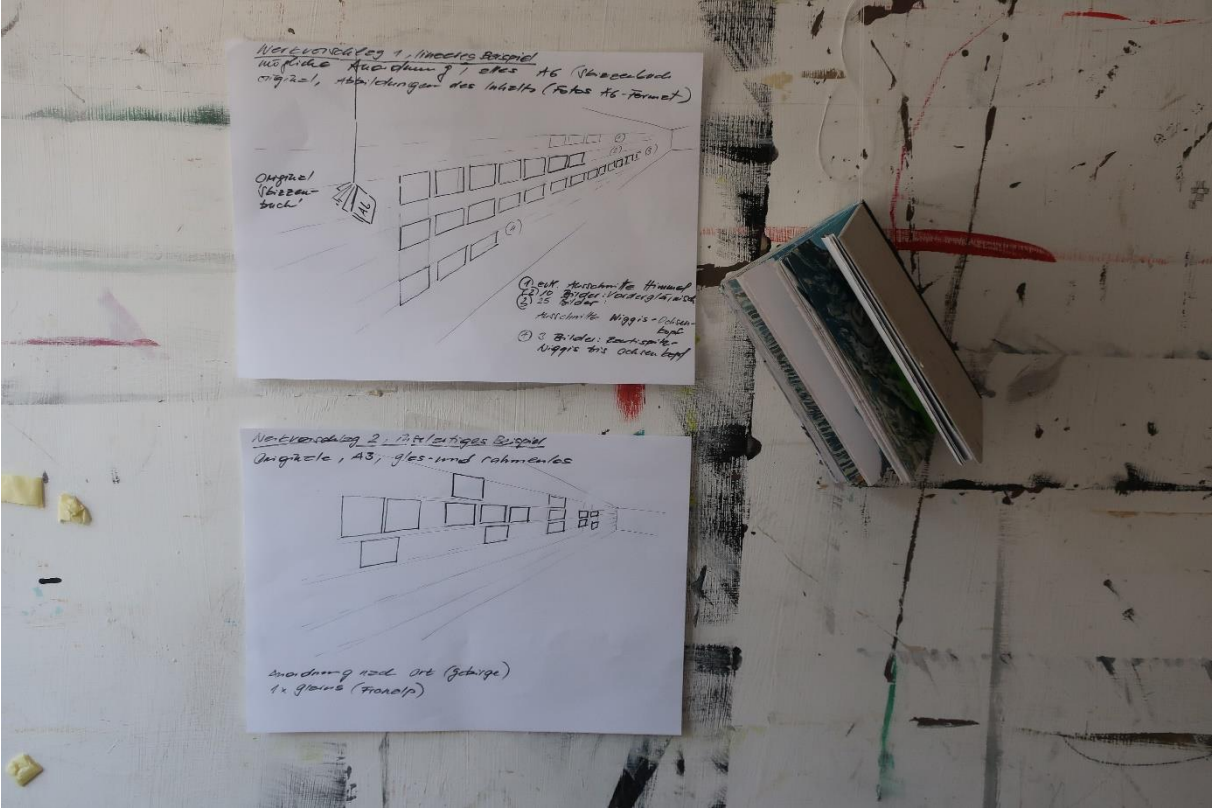 Werkvorschlag 1, lineares Beispiel
mögliche Anordnung, altes A6 Skizzenbuch
original, Abbildungen des Inhalts (Fotos A6-Format)
Original
'Skizzen-
buch'
A6
① evtl. Ausschnitte Himmel
② 10 Bilder: Vorderglärnisch
25 Bilder
Ausschnitte Wiggis-Ochsen-
kopf
3 Bilder:
Wiggis bis Ochsenkopf
Werkvorschlag 2, Beispiel
Originale, A3, glas-und rahmenlos
Anordnung nach Ort (Gebirge)
1x Glarus (Fronalp)